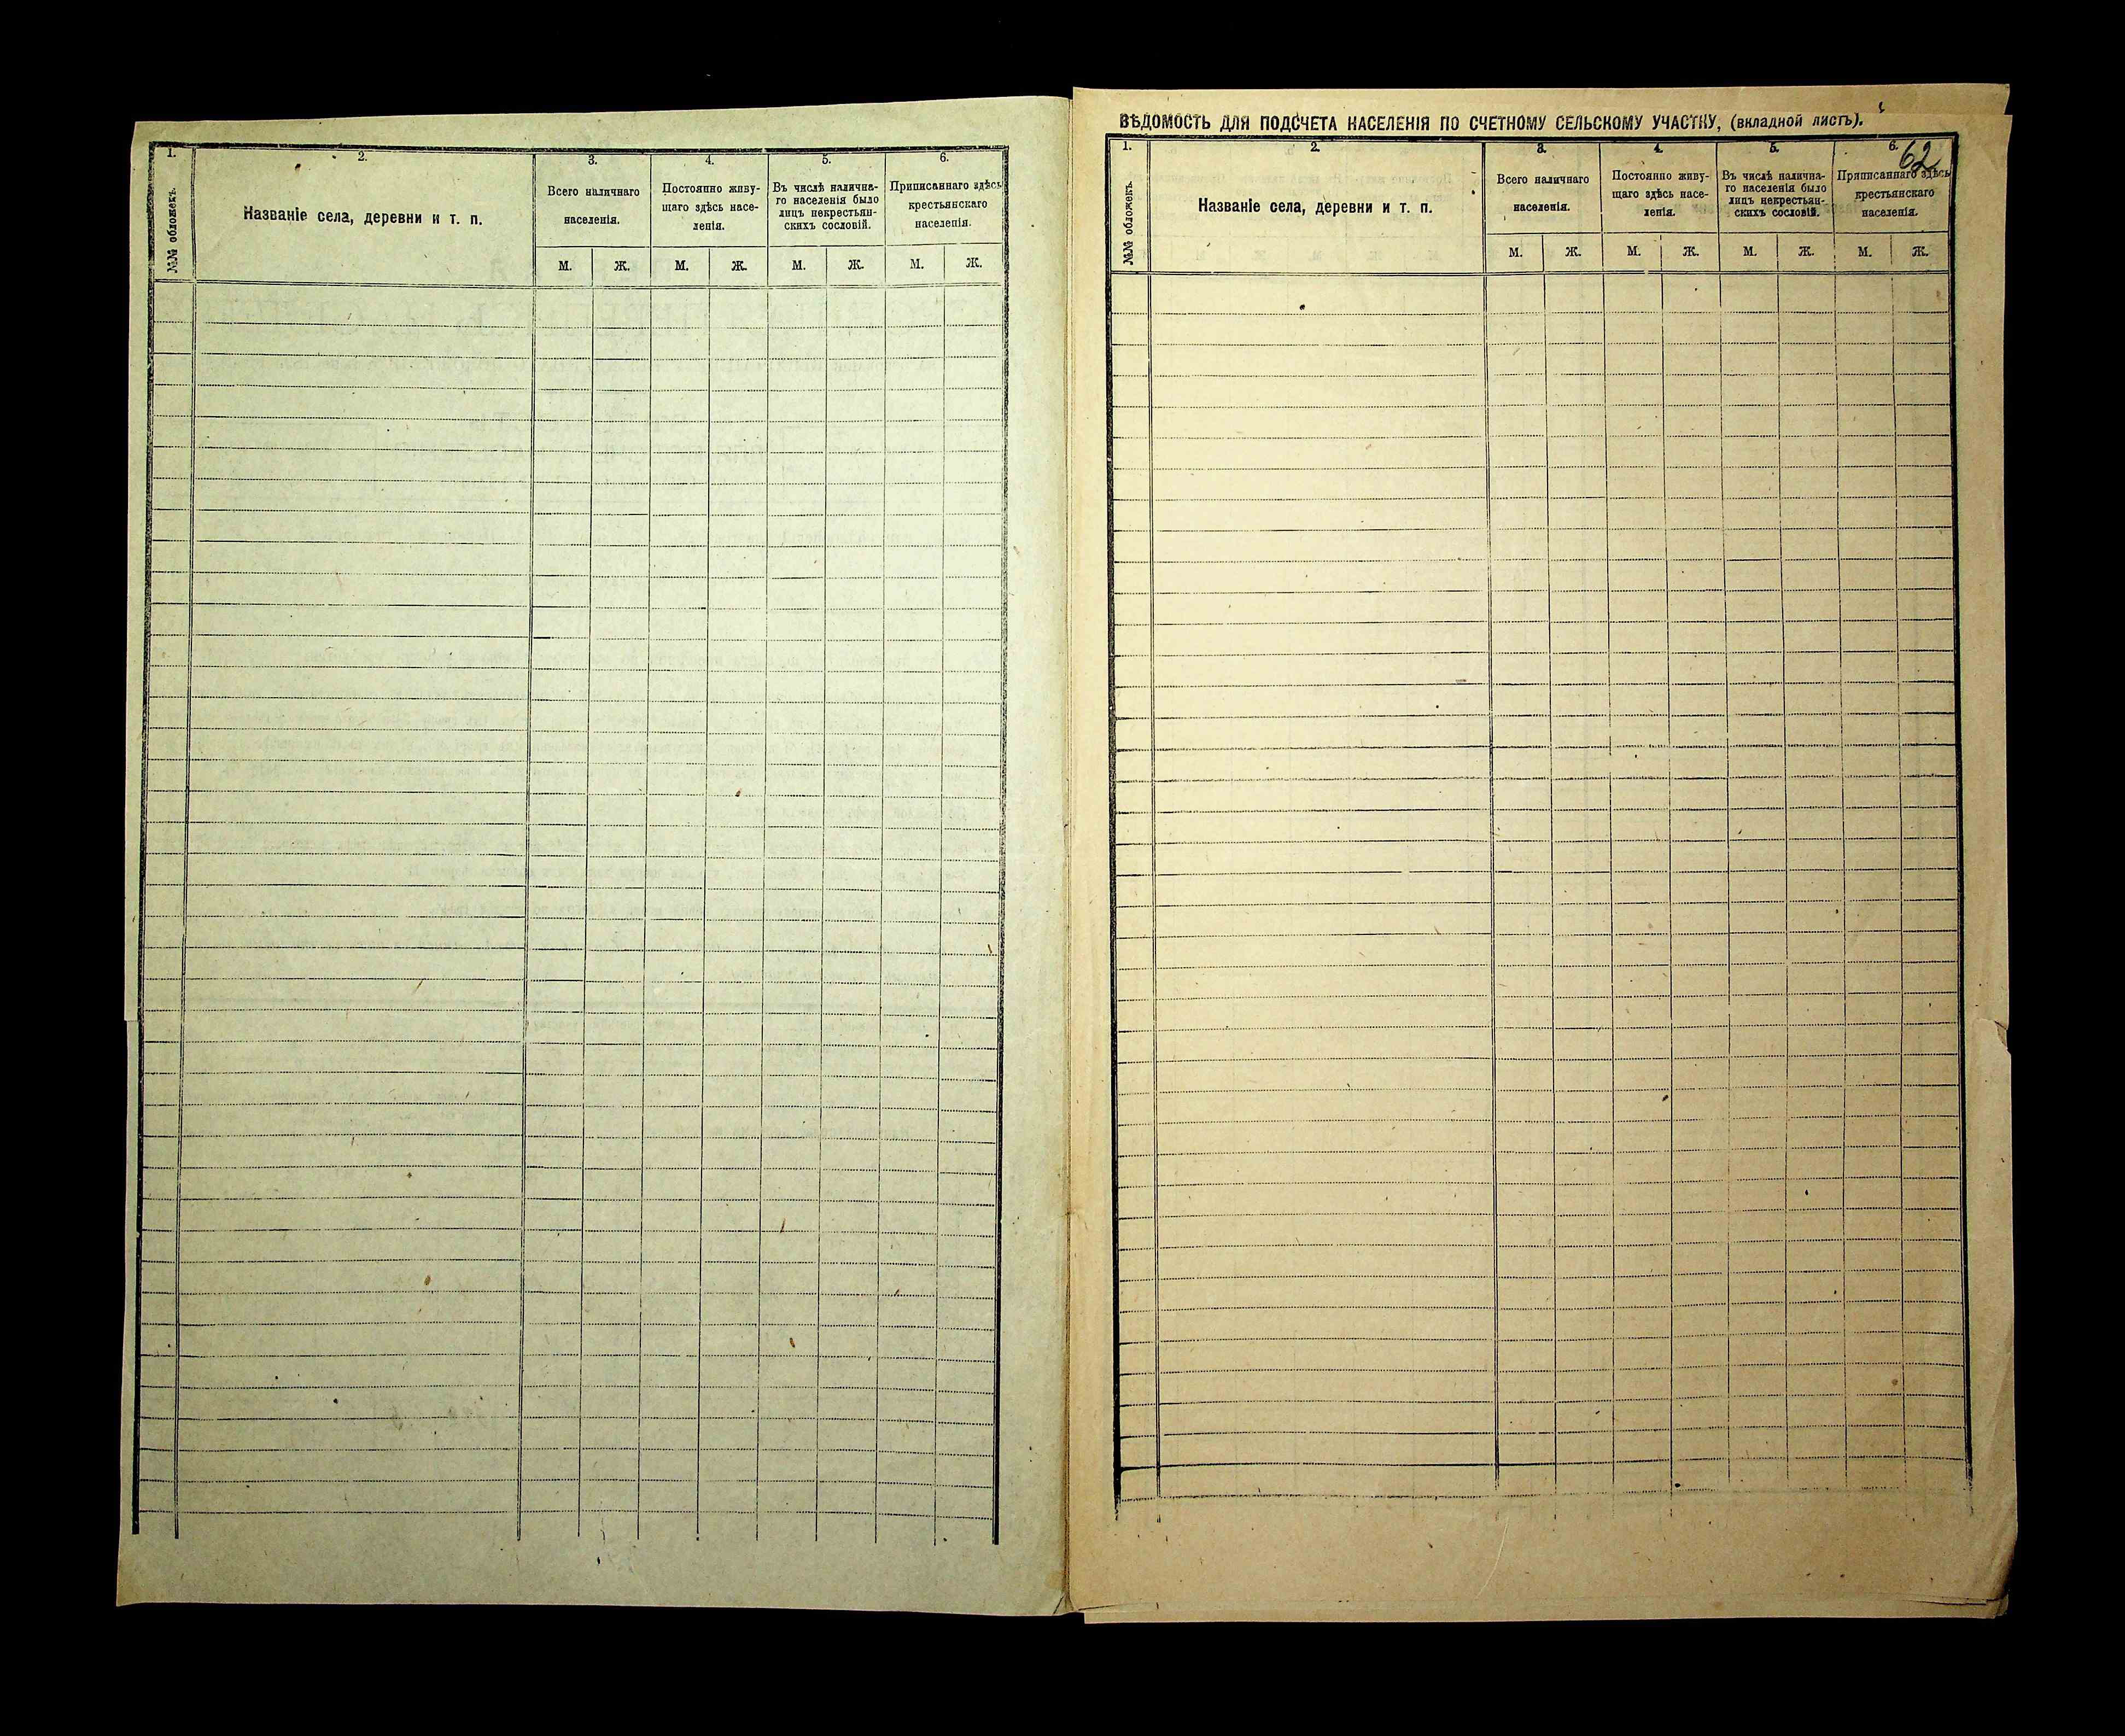 1.
2.
3.
4.
5.
6.
№№ обложекъ.
Названіе села, деревни и т. п.
Всего наличнаго
населенія.
Постоянно живу-
щаго здѣсь насе-
ленія.
Въ числѣ налична-
го населенія было
лицъ некрестьян-
скихъ сословій.
Приписаннаго здѣсь
крестьянскаго
населенія.
М. Ж. М. Ж. М. Ж. М. Ж.
ВѢДОМОСТЬ ДЛЯ ПОДСЧЕТА НАСЕЛЕНІЯ ПО СЧЕТНОМУ СЕЛЬСКОМУ УЧАСТКУ, (вкладной листъ).
62
1.
2.
3.
4.
5.
6.
№№ обложекъ.
Названіе села, деревни и т. п.
Всего наличнаго
населенія.
Постоянно живу-
щаго здѣсь насе-
ленія.
Въ числѣ налична-
го населенія было
лицъ некрестьян-
скихъ сословій.
Приписаннаго здѣсь
крестьянскаго
населенія.
М. Ж. М. Ж. М. Ж. М. Ж.